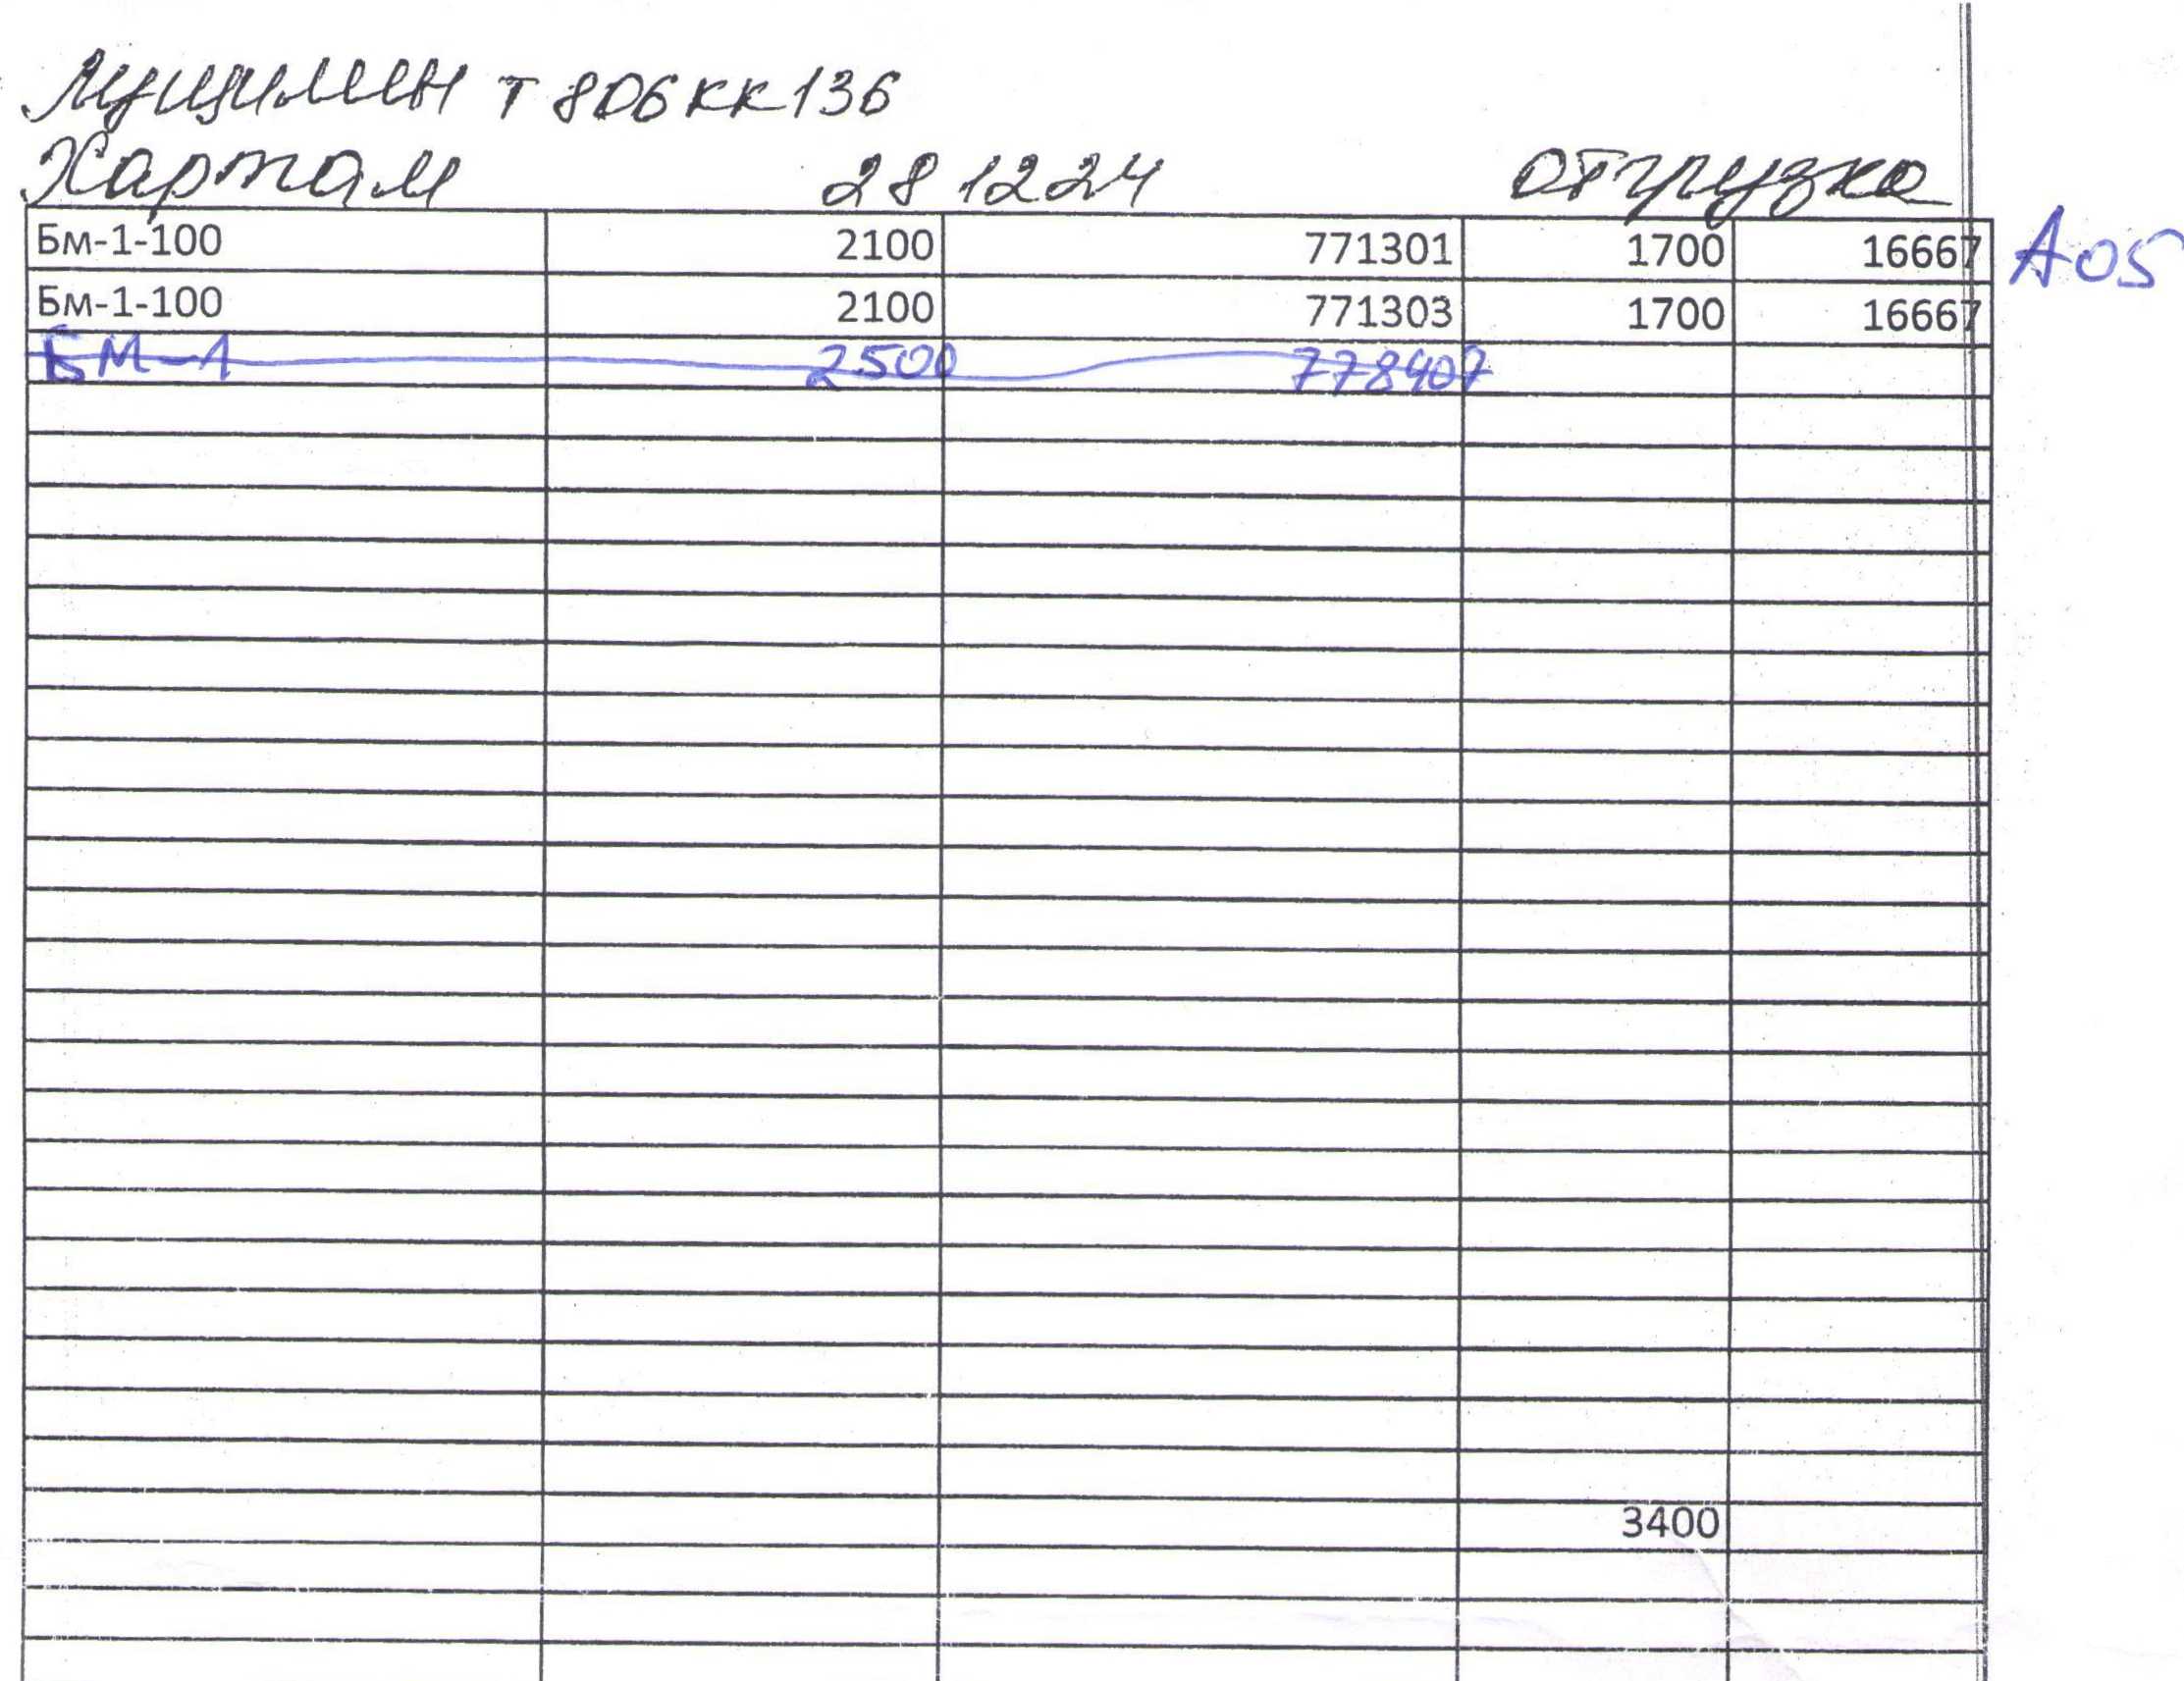 т 806 кк 136
Картам 28 12 24 отгрузка
Бм-1-100 2100 771301 1700 16667 А05
Бм-1-100 2100 771303 1700 16667
БМ-1 2500 778407
3400